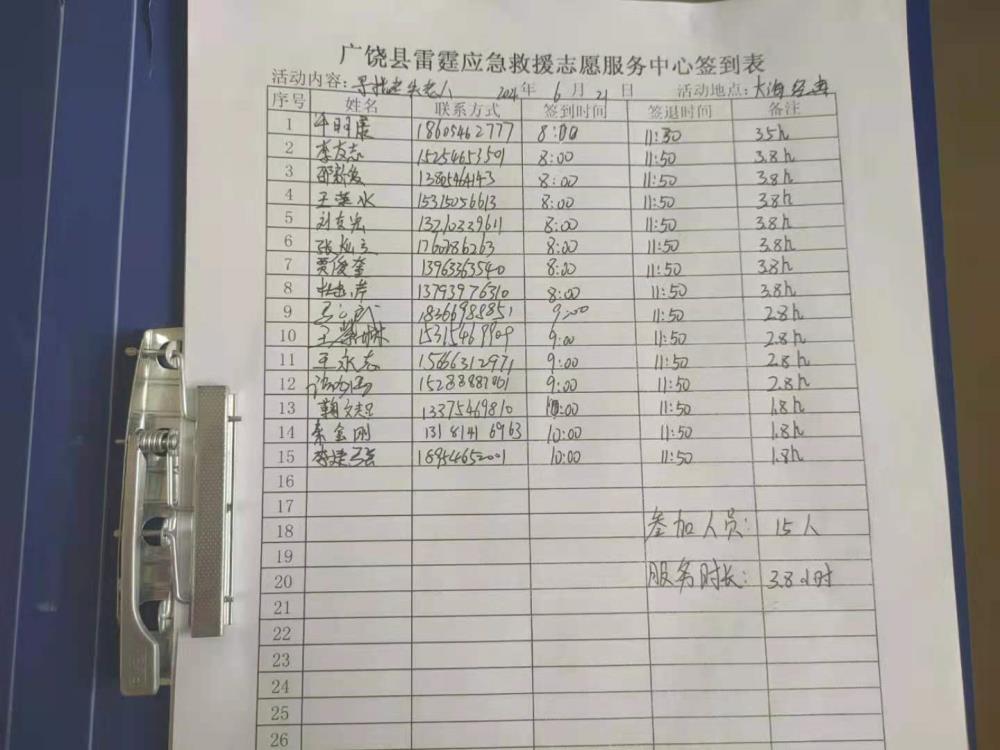 广饶县雷霆应急救援志愿服务中心签到表
活动内容:寻找走失老人 2021年 6月 21日 活动地点:大海经典
序号 姓名 联系方式 签到时间 签退时间 备注
1 18605462777 8:00 11:30 3.5h
2 李友志 15254653501 8:00 11:50 3.8h
3 13805464143 8:00 11:50 3.8h
4 王 水 15315056613 8:00 11:50 3.8h
5 刘 宏 13210339611 8:00 11:50 3.8h
6 张 立 1760286263 8:00 11:50 3.8h
7 贾俊奎 13963363540 8:00 11:50 3.8h
8 13793976310 8:00 11:50 3.8h
9 18366988851 9:00 11:50 2.8h
10 王 树 9:00 11:50 2.8h
11 王永志 15666312971 9:00 11:50 2.8h
12 9:00 11:50 2.8h
13 韩文忠 13375469810 10:00 11:50 1.8h
14 秦金刚 13181416963 10:00 11:50 1.8h
15 李建强 18954652001 10:00 11:50 1.8h
16
17
18 参加人员: 15人
19
20 服务时长: 3.8小时
21
22
23
24
25
26